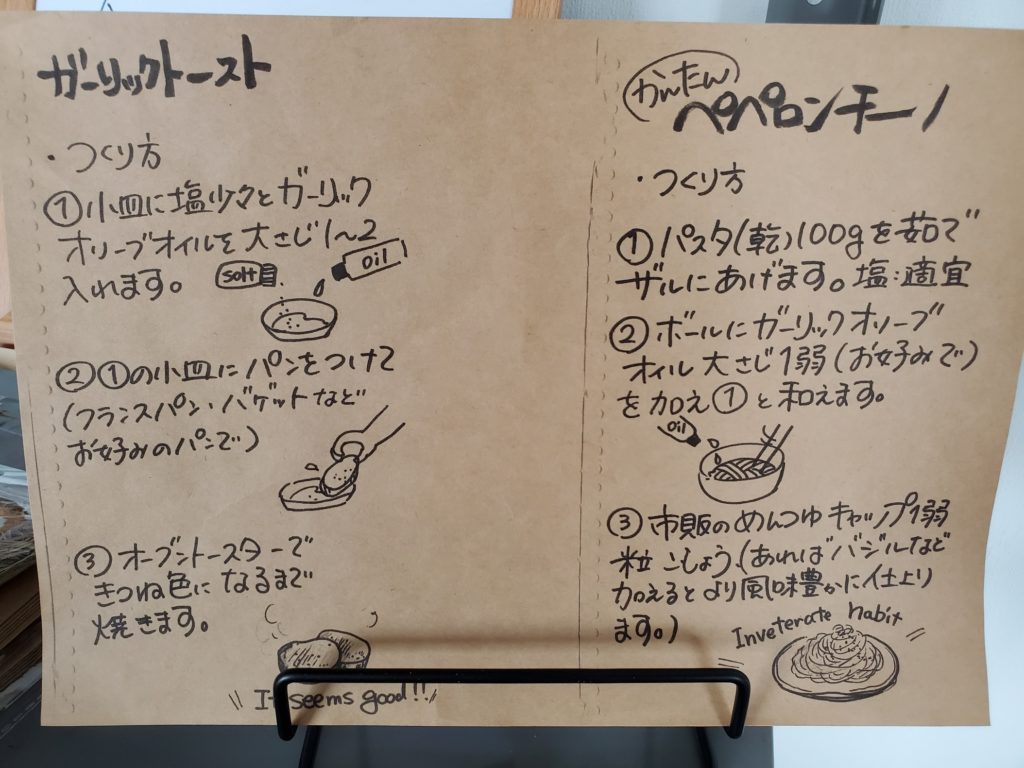 ガーリックトースト
・つくり方
①小皿に塩少々とガーリック
オリーブオイルを大さじ1〜2
入れます。
solt
oil
②①の小皿にパンをつけて
(フランスパン・バゲットなど
お好みのパンで)
③オーブントースターで
きつね色になるまで
焼きます。
It seems good!!
かんたん
ペペロンチーノ
・つくり方
①パスタ(乾)100gを茹で
ザルにあげます。塩:適宜
②ボールにガーリックオリーブ
オイル大さじ1弱(お好みで)
を加え①と和えます。
oil
③市販のめんつゆキャップ1弱
粒こしょう、(あればバジルなど
加えるとより風味豊かに仕上り
ます。)
Inveterate habit